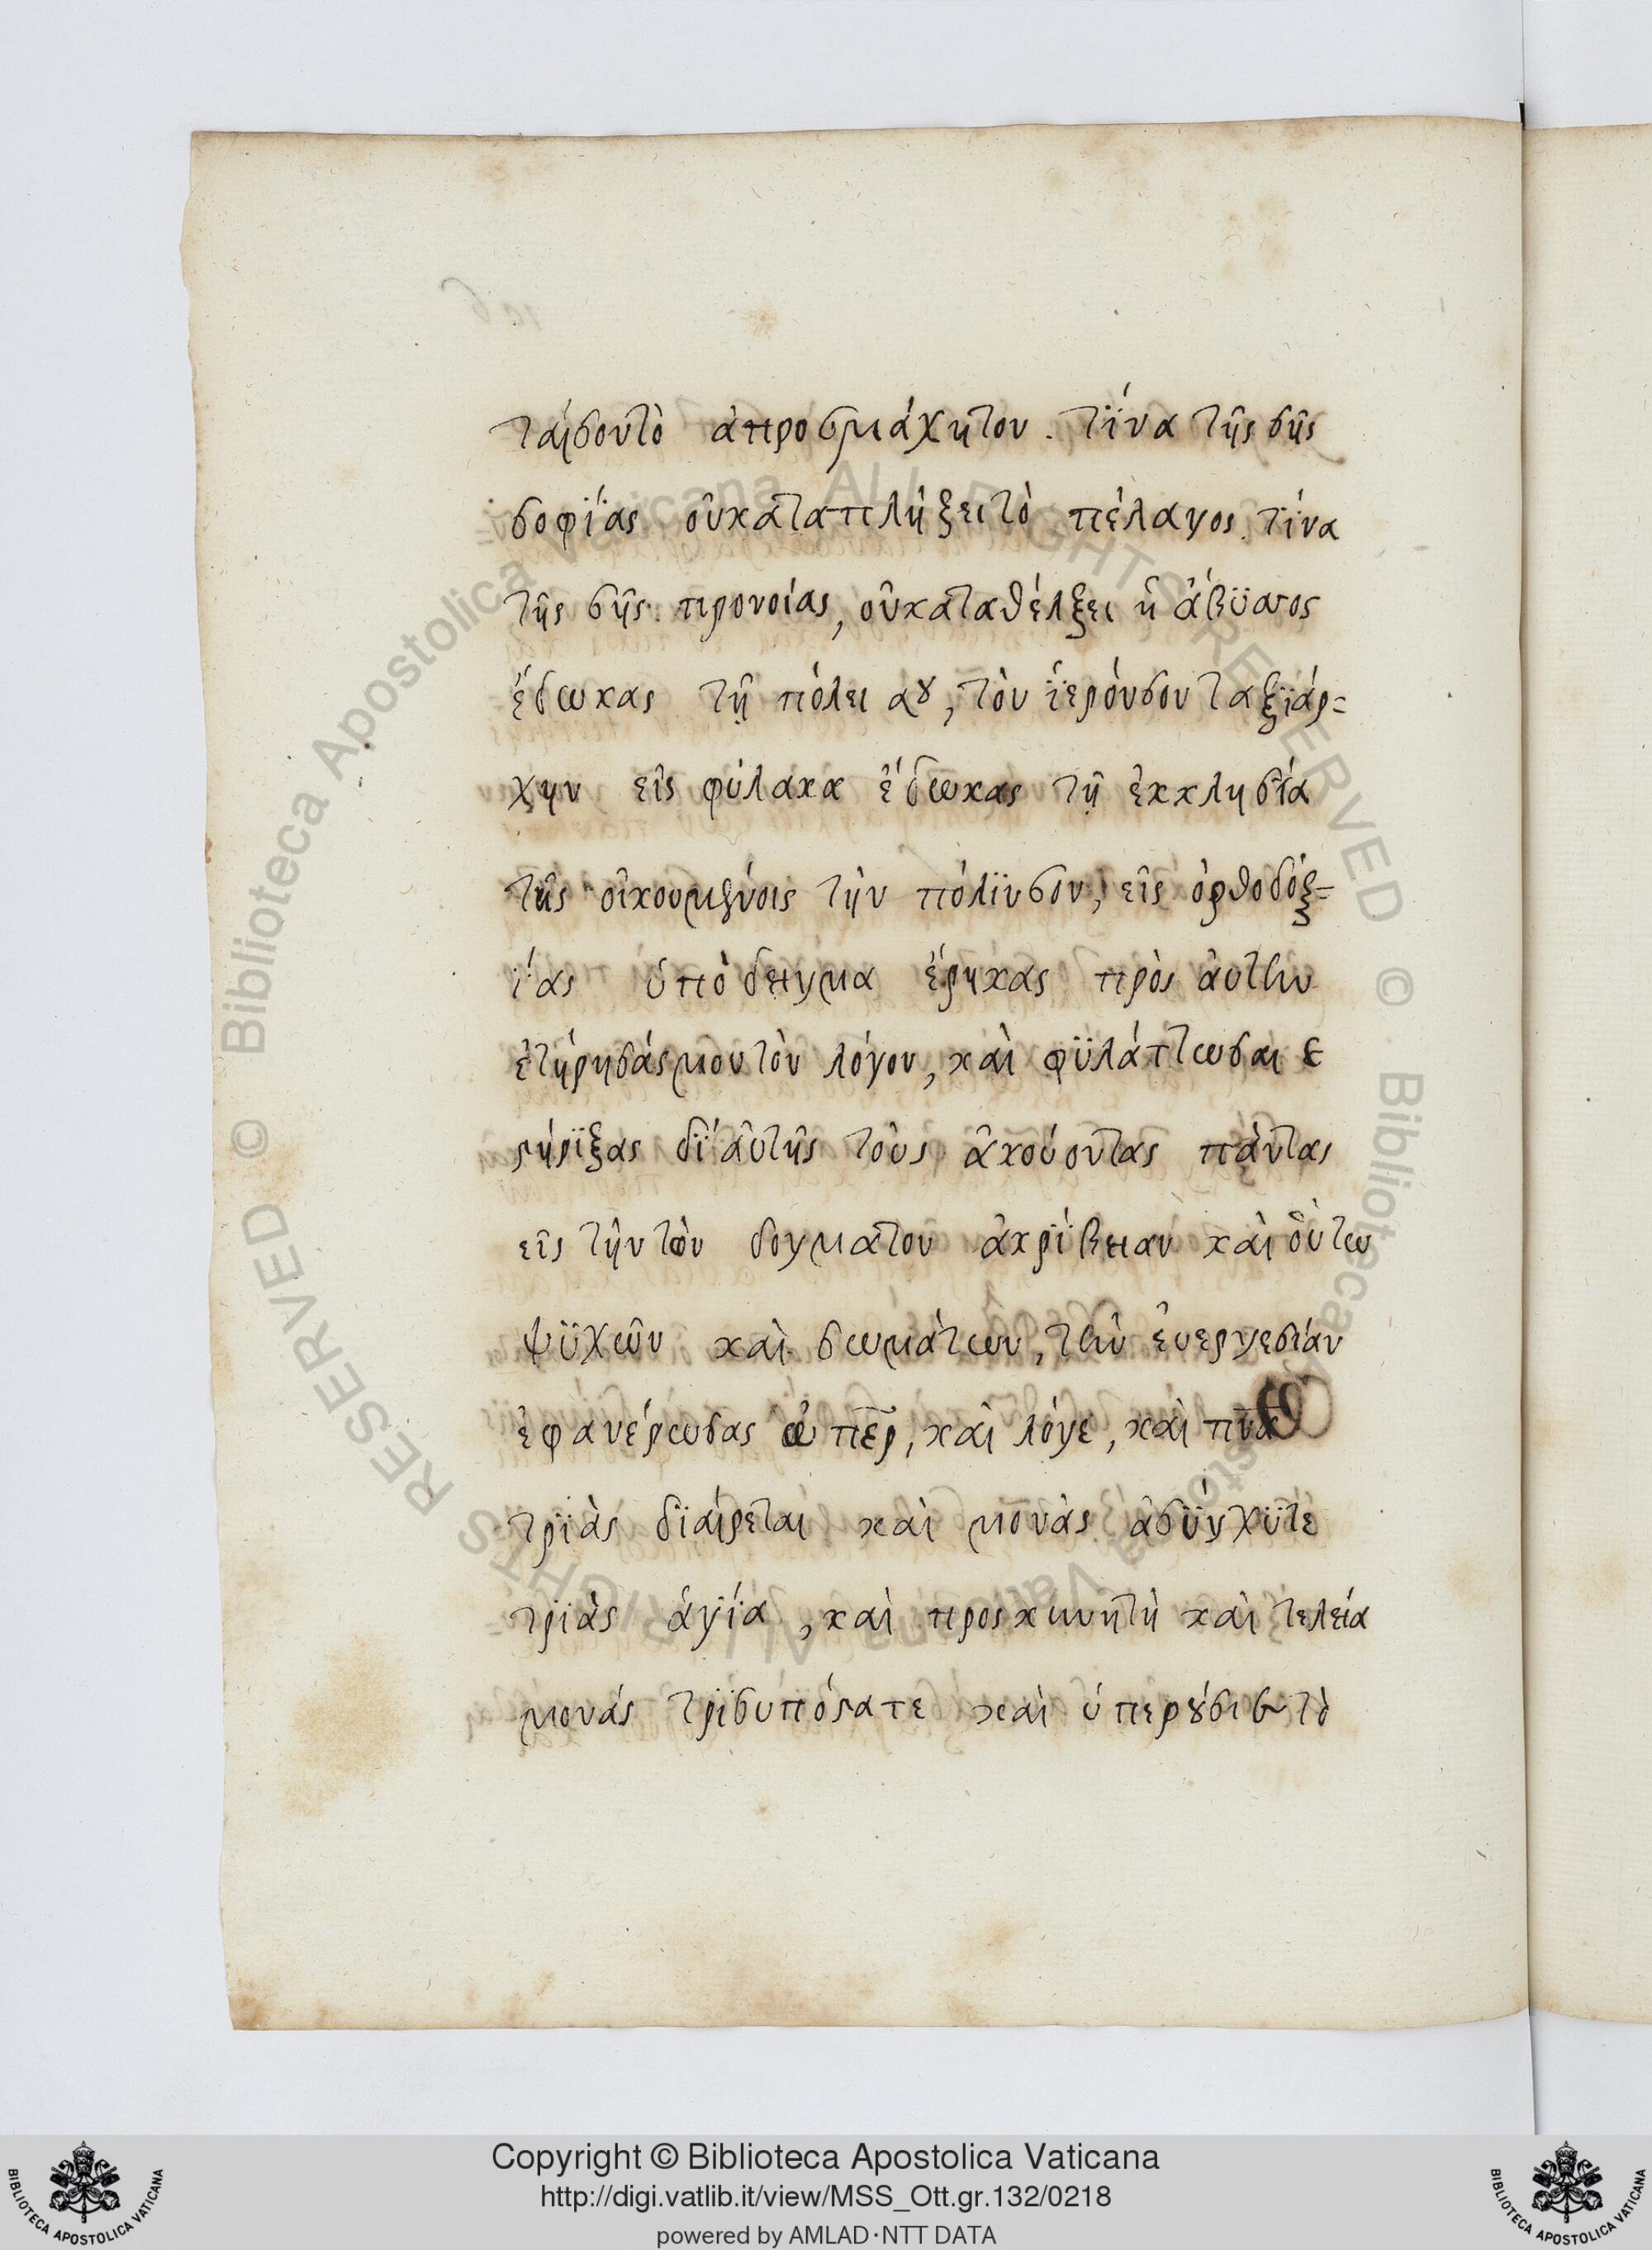 ταίσουτὸ ἀπροσμάχητον. τΐνα τῆς σῆς
σοφΐας οὐκαταπλήξει τὸ πέλαγος. τΐνα
τῆς σῆς προνοίας, οὐκαταθέλξει ἡ ἀβϋσσος
ἔδωκας τῆ πόλει σȣ, τὸν ϊερόνσου ταξϊάρ=
χην εἰς φύλακα ἔδωκας τῆ ἐκκλησΐα
τῆς οἰκουμένοις τὴν πόλϊνσου, εἰς ὀρθοδόξ=
ΐας ὑπὸδειγμα ἔρηκας πρὸς ἀυτὴν
ἐτήρησάς μου τὸν λόγον, καὶ φϋλάττωσαι ε
ϛήρϊξας δϊ' ἀυτῆς τοὺς ἀκούοντας πάντας
εἰς τὴν τῶν δογματον ἀκρΐβειαν καὶ ὅυτω
ψϋχῶν καὶ σωμάτων, τὴν ἐυεργεσίαν
ἐφανέρωσας ὦ περ, καὶ λόγε, καὶ πνα
τρϊὰς δϊαίρεται καὶ μονὰς ἀσϋγχϋτε
τρϊὰς ἁγΐα, καὶ προσκυνητὴ καὶ τελεία
μονάς τρϊσυπόϛατε καὶ ὑπερȣσιε τὸ
Copyright © Biblioteca Apostolica Vaticana
http://digi.vatlib.it/view/MSS_Ott.gr.132/0218
powered by AMLAD·NTT DATA
BIBLIOTECA APOSTOLICA VATICANA
BIBLIOTECA APOSTOLICA VATICANA
© Biblioteca Apostolica Vaticana ALL RIGHTS RESERVED
© Biblioteca Apostolica Vaticana ALL RIGHTS RESERVED